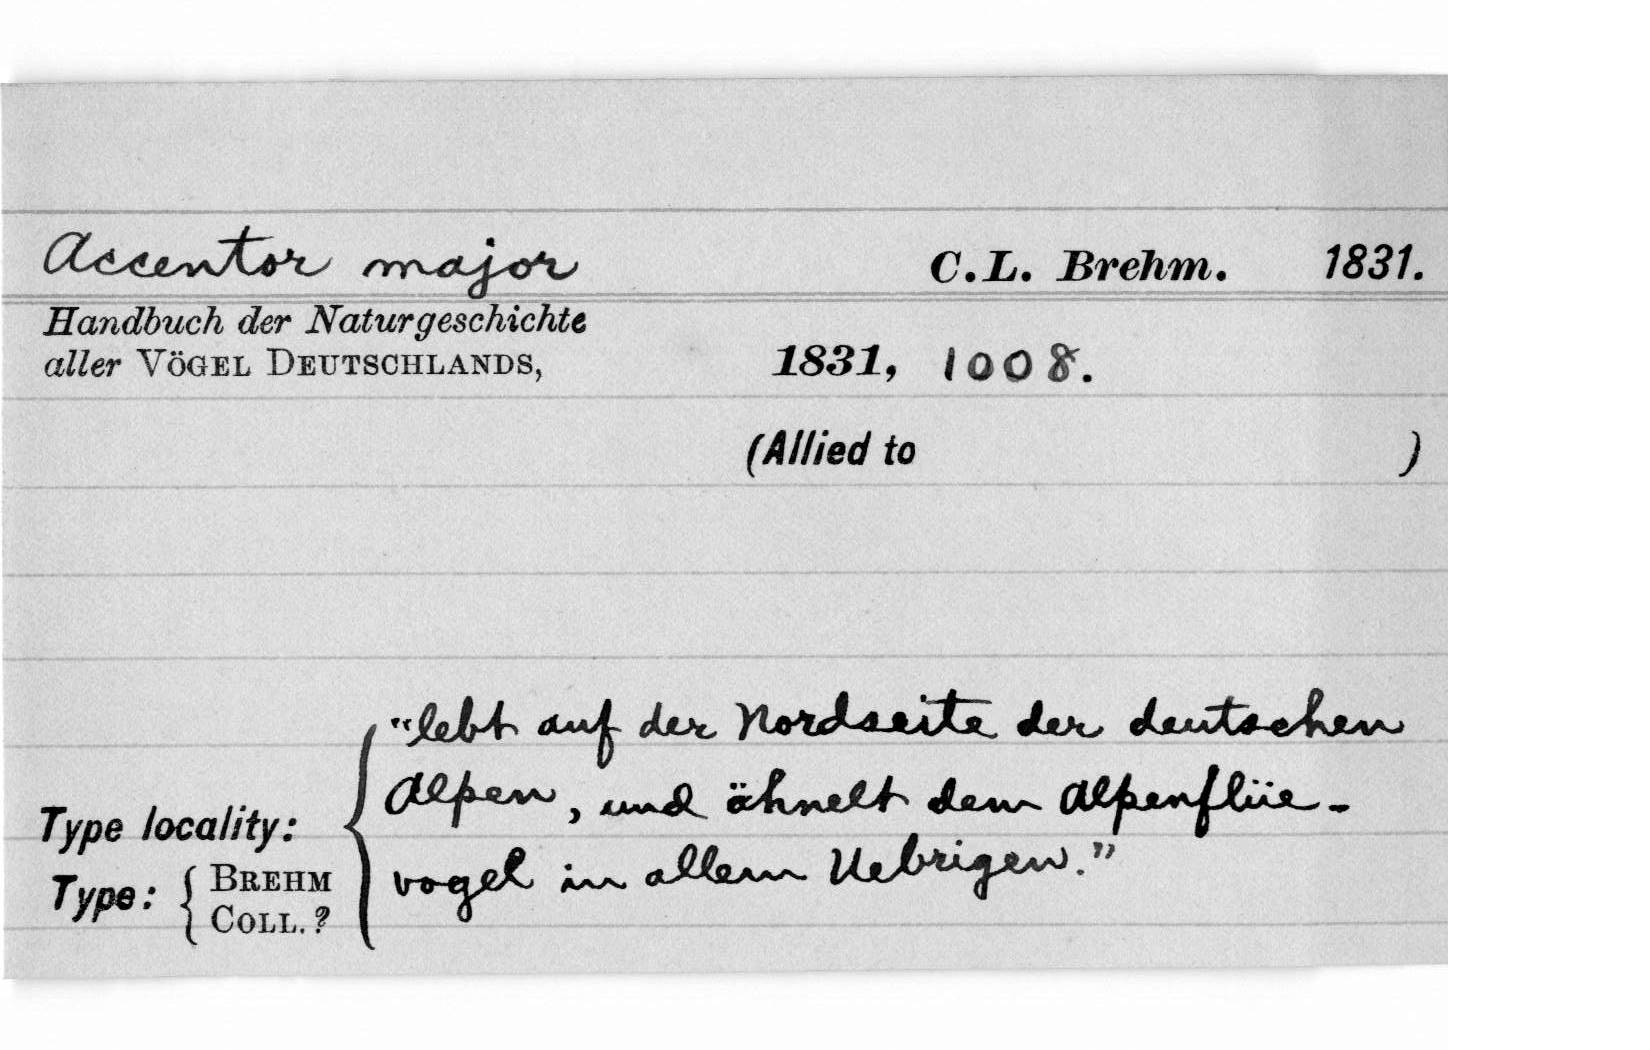 Accentor major C.L. Brehm. 1831.
Handbuch der Naturgeschichte
aller VÖGEL DEUTSCHLANDS, 1831, 1008.
(Allied to )
"lebt auf der Nordseite der deutschen
Alpen, und ähnelt dem Alpenflüe-
vogel in allem Uebrigen."
Type locality:
Type: { BREHM
COLL. ?